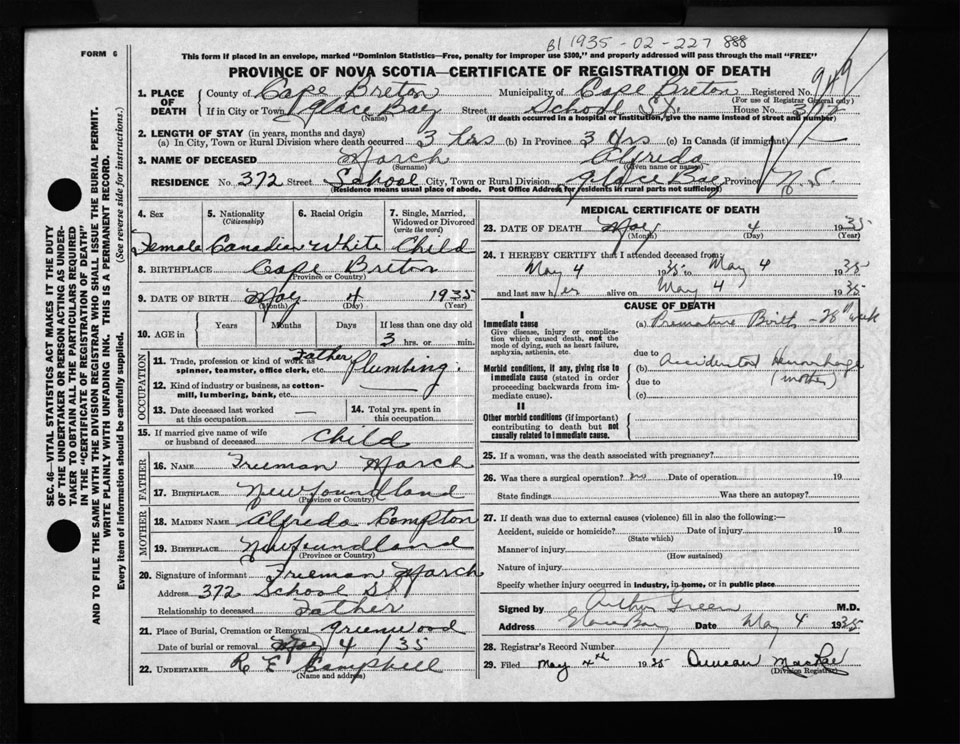 B1 1935-02-227 888
FORM 6
This form if placed in an envelope, marked "Dominion Statistics—Free, penalty for improper use $300," and properly addressed will pass through the mail "FREE"
PROVINCE OF NOVA SCOTIA—CERTIFICATE OF REGISTRATION OF DEATH
949
1. PLACE OF DEATH County of Cape Breton Municipality of Cape Breton Registered No.
(For use of Registrar General only)
If in City or Town Glace Bay Street School St. House No. 372
(Name) (If death occurred in a hospital or institution, give name instead of street and number)
2. LENGTH OF STAY (in years, months and days)
(a) In City, Town or Rural Division where death occurred 3 hrs (b) In Province 3 Hrs (c) In Canada (if immigrant)
3. NAME OF DECEASED March Alfreda
(Surname) (Given name or names)
RESIDENCE No. 372 Street School City, Town or Rural Division Glace Bay Province N.S.
(Residence means usual place of abode. Post Office Address for residents in rural parts not sufficient)
4. Sex 5. Nationality 6. Racial Origin 7. Single, Married, Widowed or Divorced
(Citizenship) (write the word)
Female Canadian White Child
8. BIRTHPLACE Cape Breton
(Province or Country)
9. DATE OF BIRTH May 4 1935
(Month) (Day) (Year)
10. AGE in Years Months Days If less than one day old
3 hrs. or min.
OCCUPATION
11. Trade, profession or kind of work as Father Plumbing.
spinner, teamster, office clerk, etc.
12. Kind of industry or business, as cotton-
mill, lumbering, bank, etc. —
13. Date deceased last worked at this occupation — 14. Total yrs. spent in this occupation
15. If married give name of wife or husband of deceased Child
FATHER
16. NAME Freeman March
17. BIRTHPLACE Newfoundland
(Province or Country)
MOTHER
18. MAIDEN NAME Alfreda Compton
19. BIRTHPLACE Newfoundland
(Province or Country)
20. Signature of informant Freeman March
Address 372 School St
Relationship to deceased Father
21. Place of Burial, Cremation or Removal Greenwood
Date of burial or removal May 4 / 35
22. UNDERTAKER R E Campbell
(Name and address)
MEDICAL CERTIFICATE OF DEATH
23. DATE OF DEATH May 4 1935
(Month) (Day) (Year)
24. I HEREBY CERTIFY that I attended deceased from:
May 4 1935 to May 4 1935
and last saw her alive on May 4 1935
CAUSE OF DEATH
I
Immediate cause (a) Premature Birth - 28th week
Give disease, injury or complica-
tion which caused death, not the
mode of dying, such as heart failure,
asphyxia, asthenia, etc.
due to
Morbid conditions, if any, giving rise to (b) Accidental hemorrhage
immediate cause (stated in order due to (mother)
proceeding backwards from im-
mediate cause). (c)
II
Other morbid conditions (if important)
contributing to death but not
causally related to immediate cause.
25. If a woman, was the death associated with pregnancy?
26. Was there a surgical operation? no Date of operation 19
State findings Was there an autopsy?
27. If death was due to external causes (violence) fill in also the following:—
Accident, suicide or homicide? Date of injury 19
(State which)
Manner of injury
(How sustained)
Nature of injury
Specify whether injury occurred in industry, in home, or in public place
Signed by Arthur Green M.D.
Address Glace Bay Date May 4 1935
28. Registrar's Record Number
29. Filed May 4th 1935 Duncan MacRae
(Division Registrar)
SEC. 46—VITAL STATISTICS ACT MAKES IT THE DUTY
OF THE UNDERTAKER OR PERSON ACTING AS UNDER-
TAKER TO OBTAIN ALL THE PARTICULARS REQUIRED
IN THE "CERTIFICATE OF REGISTRATION OF DEATH"
AND TO FILE THE SAME WITH THE DIVISION REGISTRAR WHO SHALL ISSUE THE BURIAL PERMIT.
WRITE PLAINLY WITH UNFADING INK. THIS IS A PERMANENT RECORD.
Every item of information should be carefully supplied. (See reverse side for instructions.)